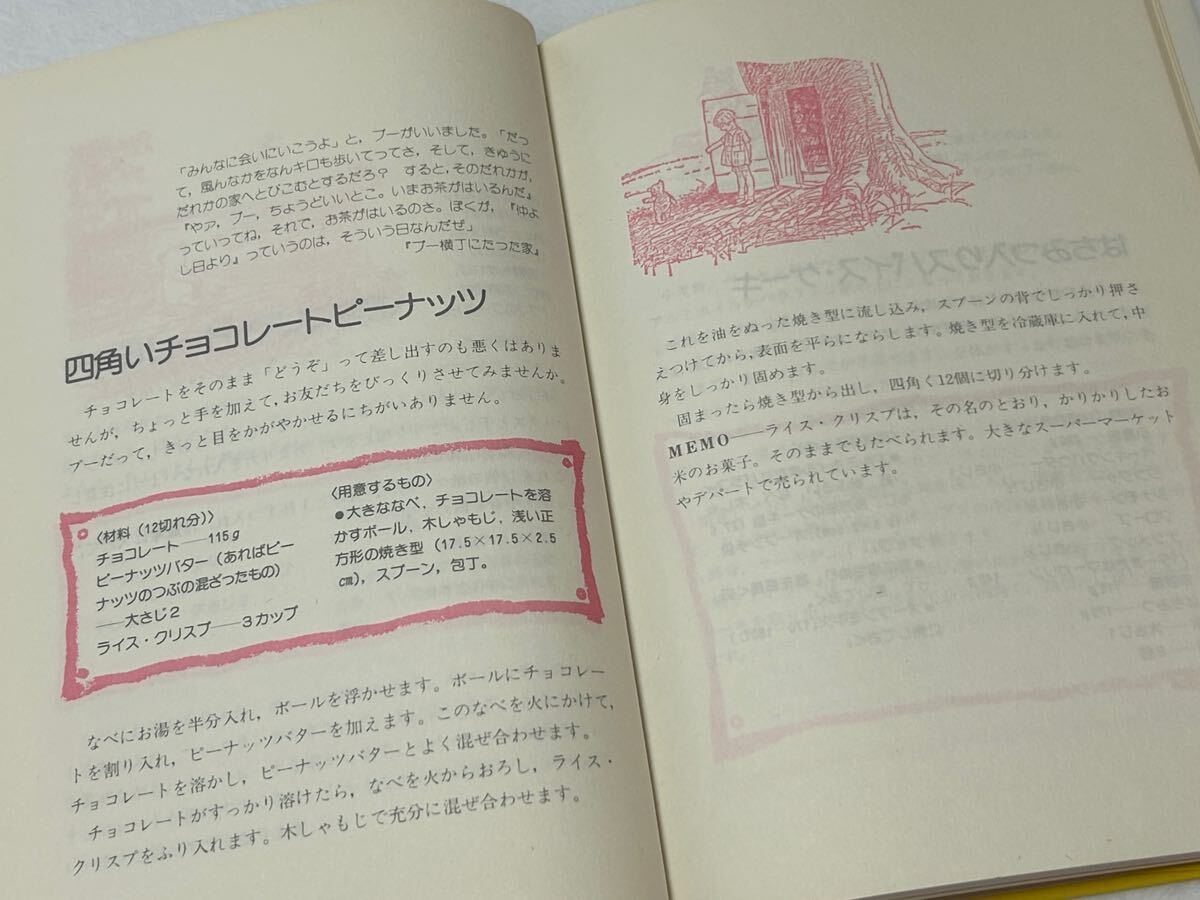 「みんなに会いにいこうよ」と，プーがいいました。「だっ
て，風んなかをなんキロも歩いてってさ，そして，きゅうに
だれかの家へとびこむとするだろ？　すると，そのだれかが，
『やア，プー，ちょうどいいとこ。いまお茶がはいるんだ』
っていってね，それで，お茶がはいるのさ。ぼくが，『仲よ
し日より』っていうのは，そういう日なんだぜ」
『プー横丁にたった家』
四角いチョコレートピーナッツ
チョコレートをそのまま「どうぞ」って差し出すのも悪くはありま
せんが，ちょっと手を加えて，お友だちをびっくりさせてみませんか。
プーだって，きっと目をかがやかせるにちがいありません。
〈材料（12切れ分）〉
チョコレート──115g
ピーナッツバター（あればピー
ナッツのつぶの混ざったもの）
──大さじ2
ライス・クリスプ──3カップ
〈用意するもの〉
●大きななべ，チョコレートを溶
かすボール，木しゃもじ，浅い正
方形の焼き型（17.5×17.5×2.5
cm），スプーン，包丁。
なべにお湯を半分入れ，ボールを浮かせます。ボールにチョコレー
トを割り入れ，ピーナッツバターを加えます。このなべを火にかけて，
チョコレートを溶かし，ピーナッツバターとよく混ぜ合わせます。
チョコレートがすっかり溶けたら，なべを火からおろし，ライス・
クリスプをふり入れます。木しゃもじで充分に混ぜ合わせます。
これを油をぬった焼き型に流し込み，スプーンの背でしっかり押さ
えつけてから，表面を平らにならします。焼き型を冷蔵庫に入れて，中
身をしっかり固めます。
固まったら焼き型から出し，四角く12個に切り分けます。
MEMO──ライス・クリスプは，その名のとおり，かりかりしたお
米のお菓子。そのままでもたべられます。大きなスーパーマーケット
やデパートで売られています。